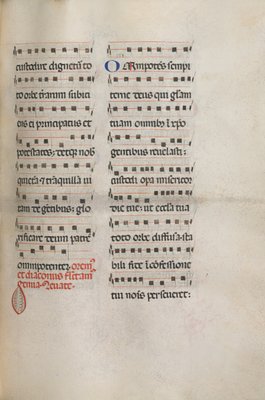 custodire dignetur to
to orbe terrarum subici
ens ei principatus et
potestates: detque nob
quietā & tranquillā ui
tam degētibus: glo
rificare deum patrē
omnipotentem. oremꝰ.
et diaconus flectam
genua. Leuate.
Omnipotēs sempi
terne deus qui gloriam
tuam omnibꝰ ī xpo
gentibus reuelasti:
custodi opa misericor
die tue: ut ecclīa tua
toto orbe diffusa sta
bili fide ī cōfessione
tui noīs perseueret: